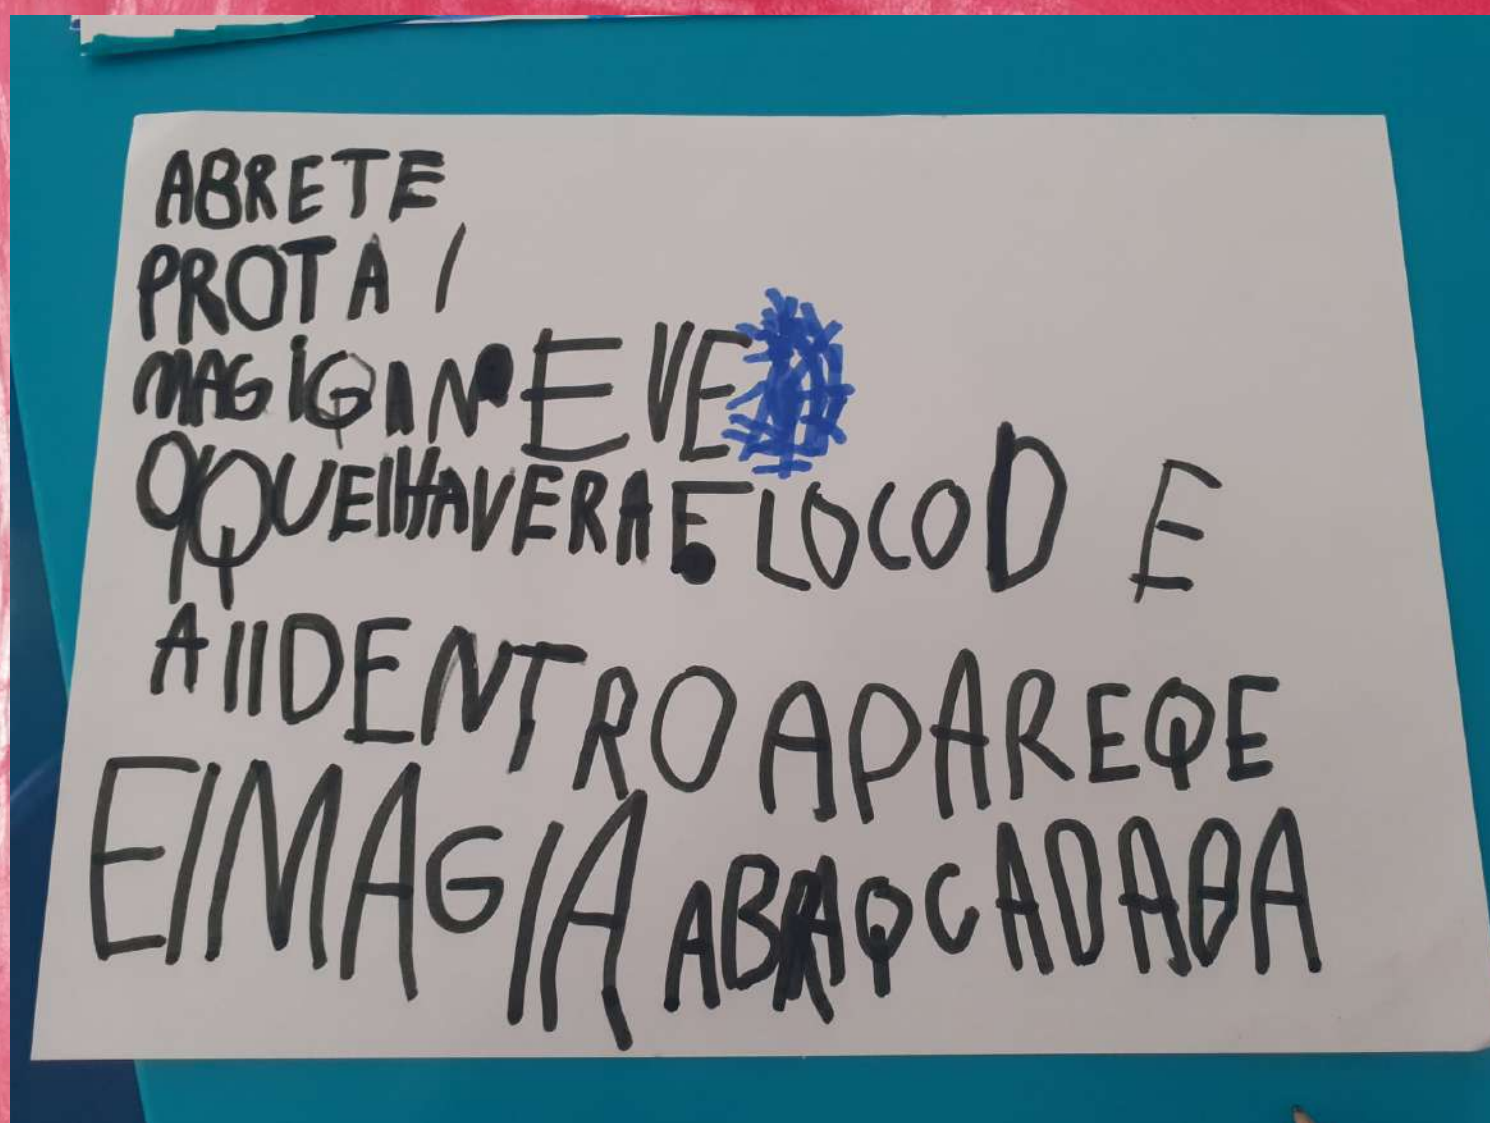 ABRETE
PROTA /
MAGIQA NEVE
QQUEIHAVERA E LOCOD E
AIIDENTROAPAREQE
EIMAGIA ABRAQCADABA